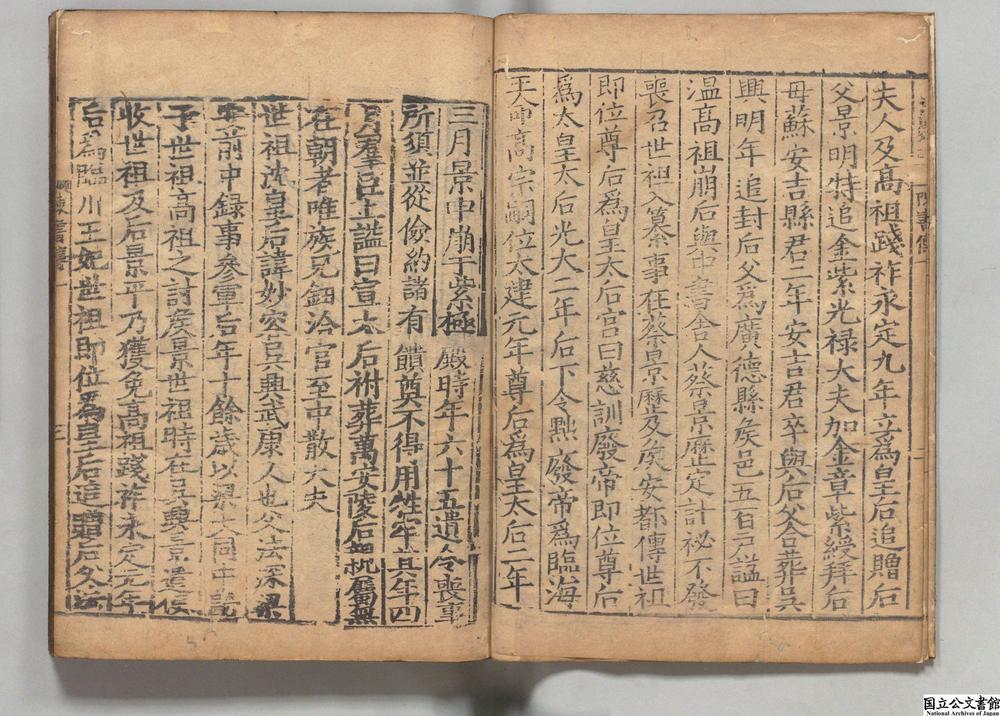 夫人及髙祖踐祚永定九年立為皇后追贈后
父景明特追金紫光禄大夫加金章紫綬拜后
母蘇安吉縣君二年安吉君卒與后父合葬吳
興明年追封后父為廣德縣矦邑五百戸謚曰
温髙祖崩后與中書舎人蔡景歴定計祕不發
喪召世祖入纂事在蔡景歴及矦安都傳世祖
即位尊后為皇太后宫曰慈訓廢帝即位尊后
為太皇太后光大二年后下令黜廢帝為臨海
王命髙宗嗣位太建元年尊后為皇太后二年
三月景申崩于紫極殿時年六十五遺令喪事
所須並從儉約諸有饋奠不得用牲牢其年四
月羣臣上謚曰宣太后祔葬萬安陵后親舊無
在朝者唯族兄鈕洽官至中散大夫
世祖沈皇后諱妙容吳興武康人也父法深梁
安前中録事參軍后年十餘歳以梁大同中歸
于世祖髙祖之討矦景世祖時在吳興景遣使
收世祖及后景平乃獲免髙祖踐祚永定元年
后為臨川王妃世祖即位為皇后追贈后父法
陳書傳一
三